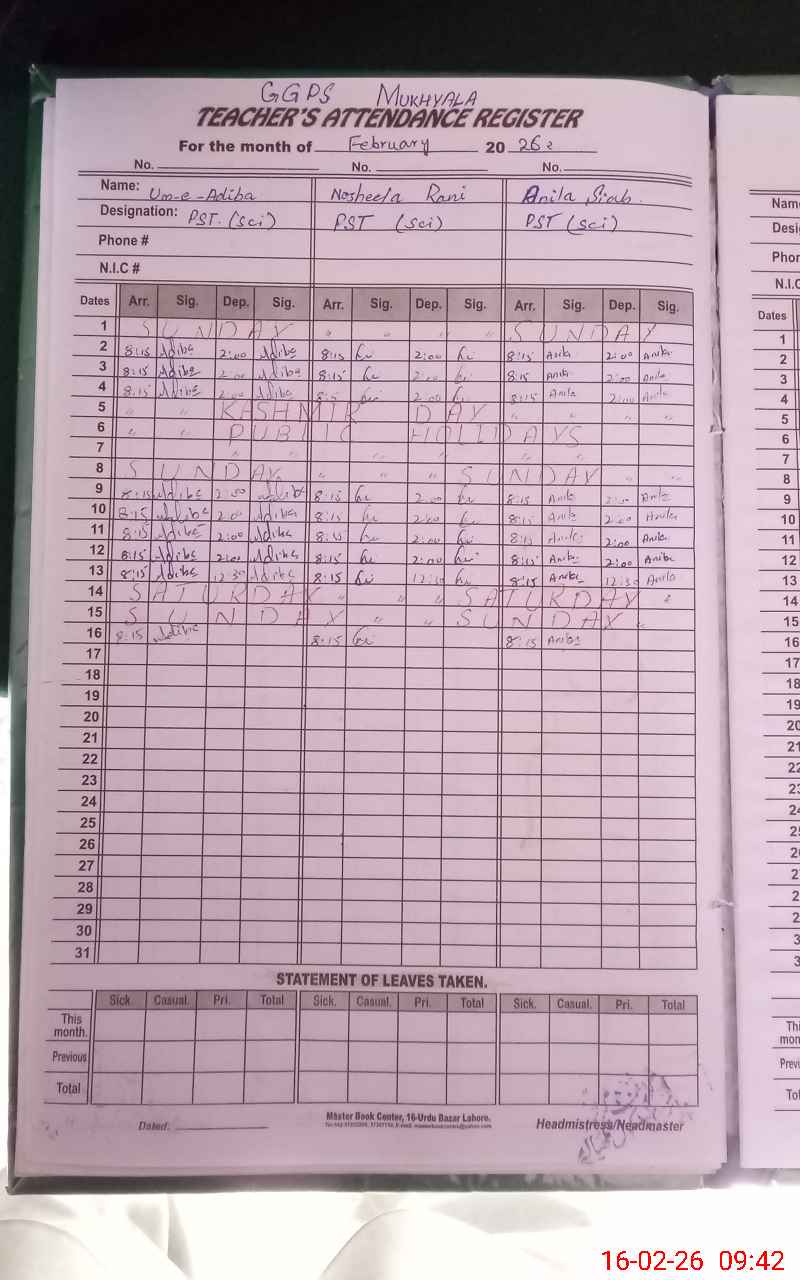 GGPS MUKHYALA
TEACHER'S ATTENDANCE REGISTER
For the month of February 20 26
No. No. No.
Name: Um-e-Adiba Nosheela Rani Anila
Designation: PST. (sci) PST (sci) PST (sci)
Phone #
N.I.C #
Dates Arr. Sig. Dep. Sig. Arr. Sig. Dep. Sig. Arr. Sig. Dep. Sig.
1 SUNDAY " " " " SUNDAY
2 8:15 Adiba 2:00 Adiba 8:15 2:00 8:15 Anila 2:00 Anila
3 8:15 Adiba 2:00 Adiba 8:15 2:00 8:15 Anila 2:00 Anila
4 8:15 Adiba 2:00 Adiba 8:15 2:00 8:15 Anila 2:00 Anila
5 " " KASHMIR DAY " " " "
6 " " PUBLIC HOLLIDAYS
7 " " " " "
8 SUNDAY " " " SUNDAY " "
9 8:15 Adiba 2:00 Adiba 8:15 2:00 8:15 Anila 2:00 Anila
10 8:15 Adiba 2:00 Adiba 8:15 2:00 8:15 Anila 2:00 Anila
11 8:15 Adiba 2:00 Adiba 8:15 2:00 8:15 Anila 2:00 Anila
12 8:15 Adiba 2:00 Adiba 8:15 2:00 8:15 Anila 2:00 Anila
13 8:15 Adiba 12:30 Adiba 8:15 12:30 8:15 Anila 12:30 Anila
14 SATURDAY " " " SATURDAY "
15 SUNDAY " " SUNDAY "
16 8:15 Adiba 8:15 8:15 Anila
17
18
19
20
21
22
23
24
25
26
27
28
29
30
31
STATEMENT OF LEAVES TAKEN.
Sick. Casual. Pri. Total Sick. Casual. Pri. Total Sick. Casual. Pri. Total
This month.
Previous
Total
Master Book Center, 16-Urdu Bazar Lahore.
Dated: Headmistress/Neadmaster
Name
Desi
Phor
N.I.C
Dates
1
2
3
4
5
6
7
8
9
10
11
12
13
14
15
16
17
18
19
20
21
22
Thi
mon
Previ
Tot
16-02-26 09:42